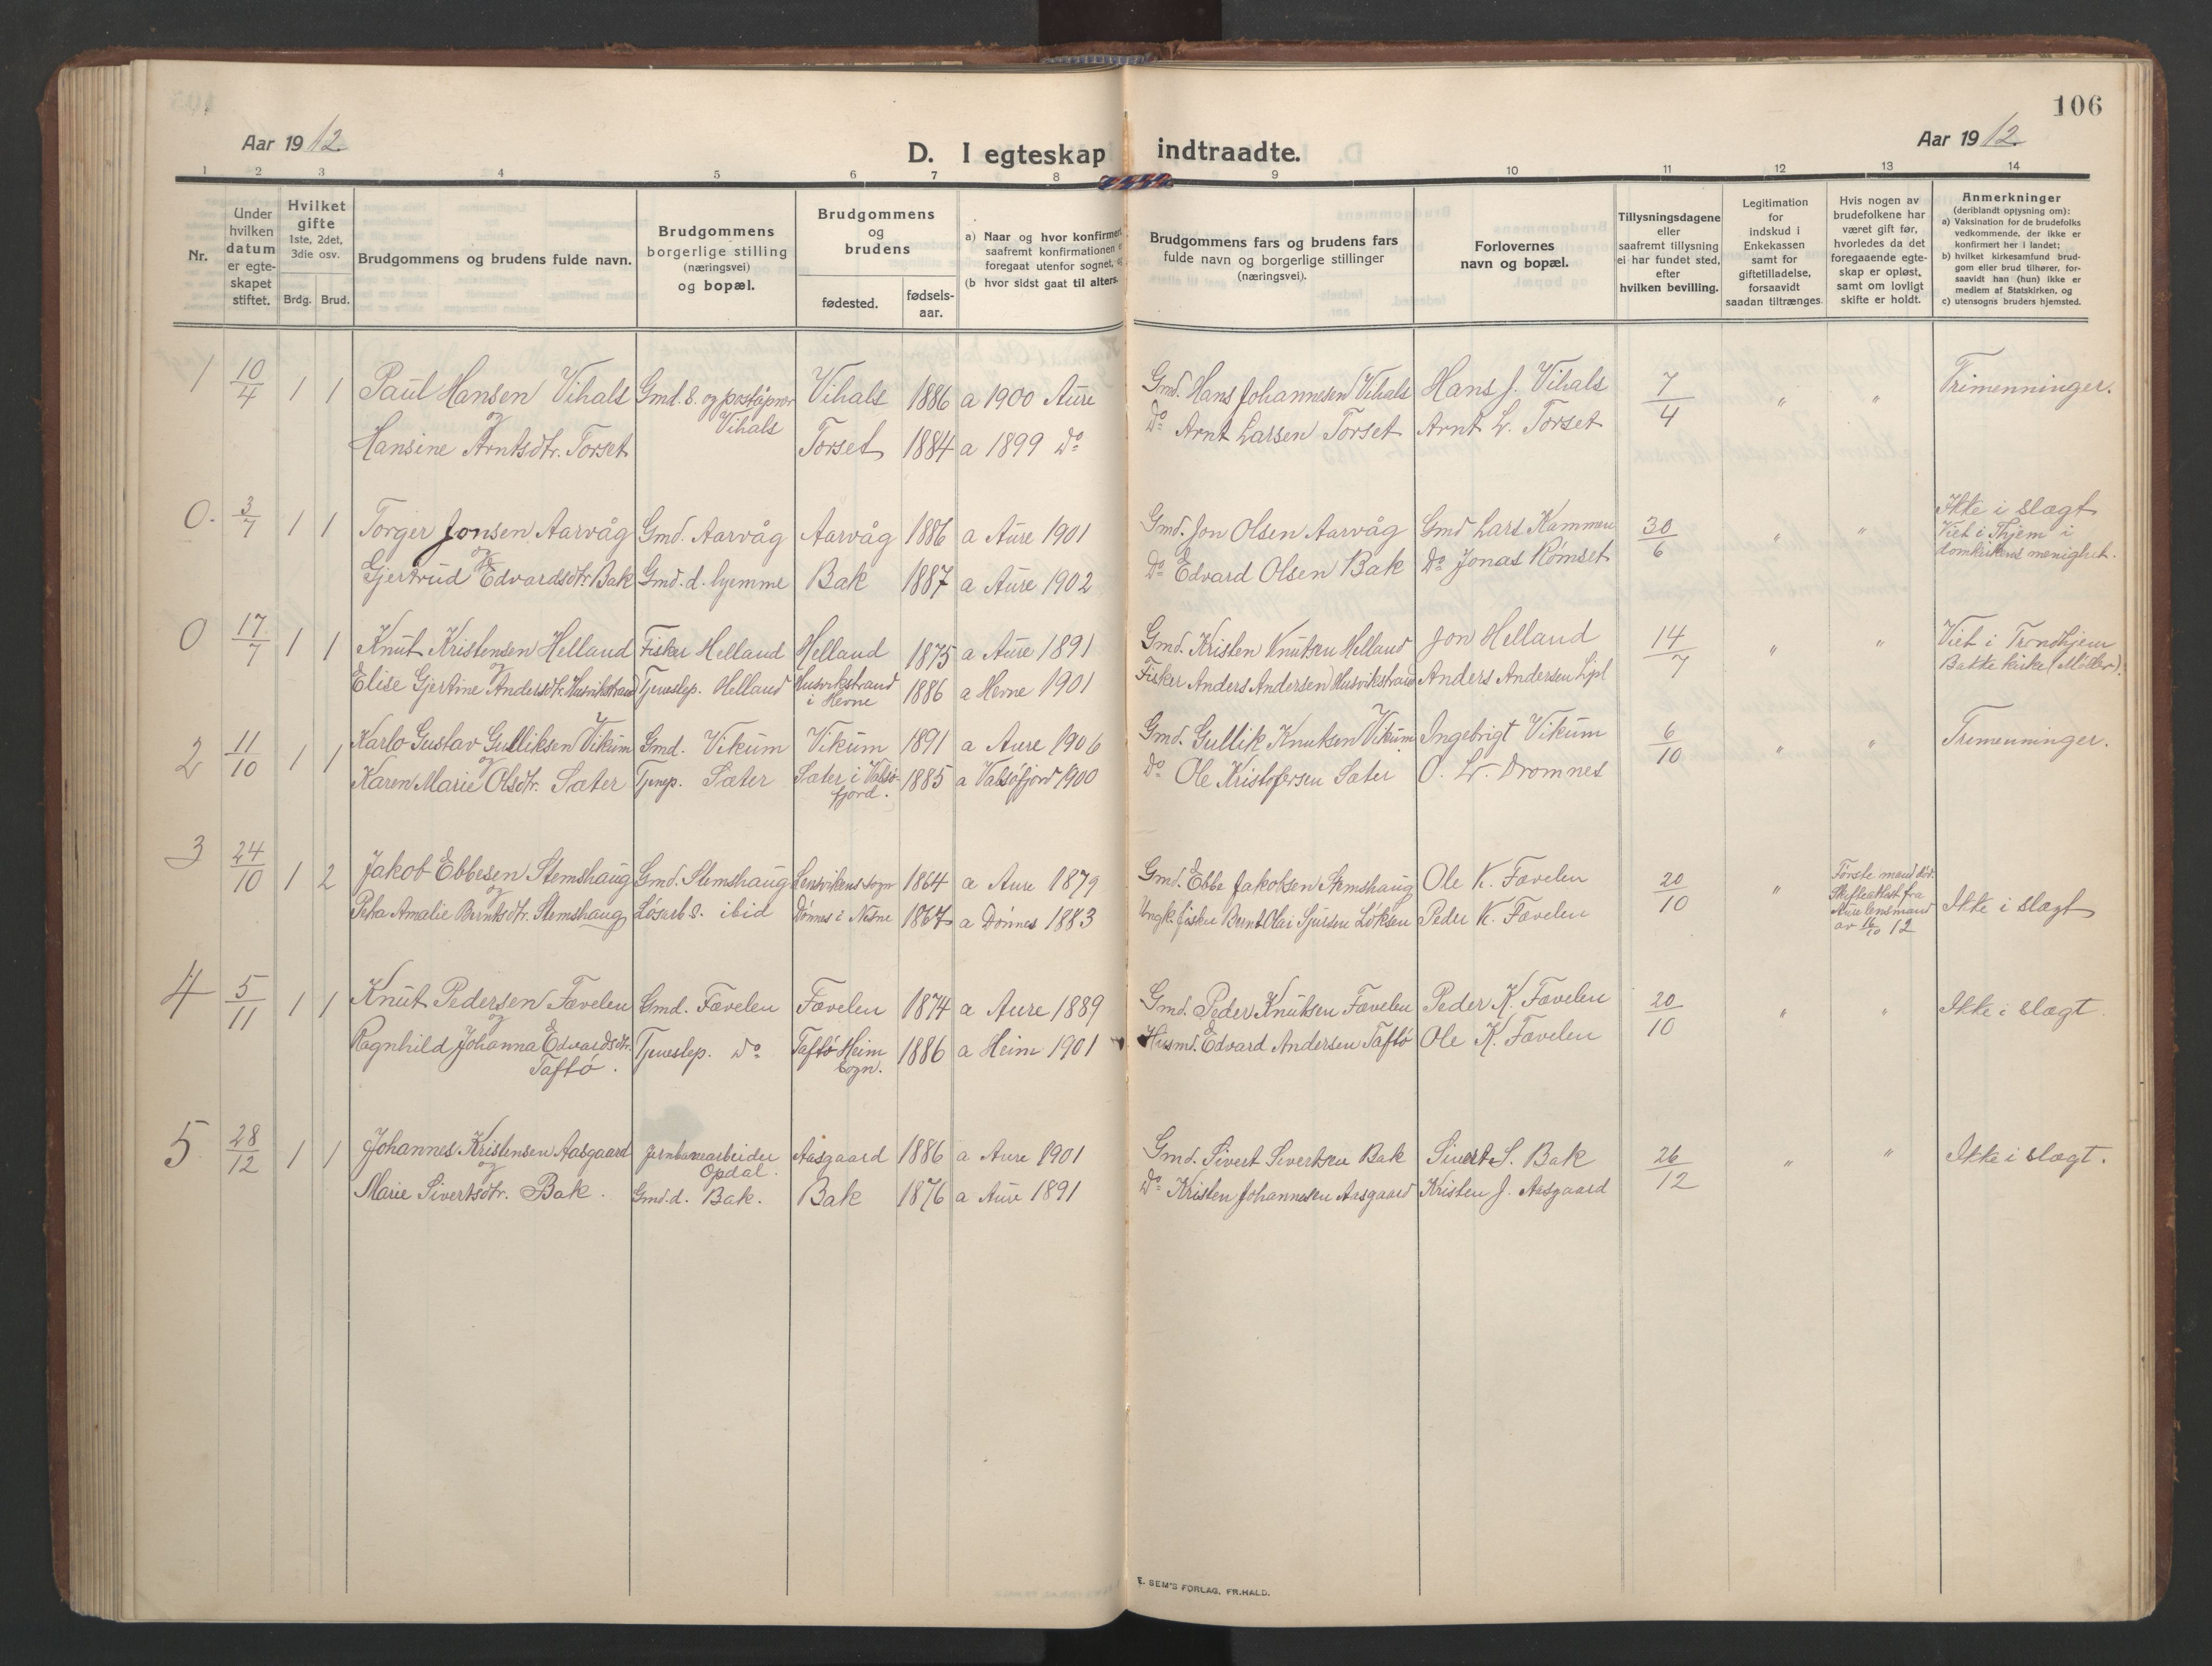 106
Aar 1912.
D. I egteskap indtraadte.
Aar 1912.
1 2 3 4 5 6 7 8 9 10 11 12 13 14
Nr.
Under hvilken datum er egteskapet stiftet.
Hvilket gifte 1ste, 2det, 3die osv.
Brdg. Brud.
Brudgommens og brudens fulde navn.
Brudgommens borgerlige stilling (næringsvei) og bopæl.
Brudgommens og brudens
fødested.
fødsels-aar.
a) Naar og hvor konfirmert
saafremt konfirmationen
foregaat utenfor sognet,
(b hvor sidst gaat til alters.
Brudgommens fars og brudens fars
fulde navn og borgerlige stillinger
(næringsvei).
Forlovernes
navn og bopæl.
Tillysningsdagene
eller
saafremt tillysning
ei har fundet sted,
efter
hvilken bevilling.
Legitimation
for
indskud i
Enkekassen
samt for
giftetilladelse,
forsaavidt
saadan tiltrænges.
Hvis nogen av
brudefolkene har
været gift før,
hvorledes da det
foregaaende egte-
skap er opløst,
samt om lovligt
skifte er holdt.
Anmerkninger
(deriblandt opjysning om):
a) Vaksination for de brudefolks
vedkommende, der ikke er
konfirmert her i landet;
b) hvilket kirkesamfund brud-
gom eller brud tilhører, for-
saavidt han (hun) ikke er
medlem af Statskirken, og
c) utensogns bruders hjemsted.
1 10/4 1 1 Paul Hansen Vihals Gmd. s. og poståpner Vihals Vihals 1886 a 1900 Aure Gmd. Hans Johannesen Vihals Hans J. Vihals 7/4 " " Trimenninger.
og
Hansine Arntsdtr. Torset Torset 1884 a 1899 do Do Arnt Larsen Torset Arnt L. Torset
0. 3/7 1 1 Torger Jonsen Aarvåg Gmd. Aarvåg Aarvåg 1886 a Aure 1901 Gmd. Jon Olsen Aarvåg Gmd Lars Kammen 30/6 " " Ikke i slægt
Viet i Thjem i
domkirkens menighet.
og
Gjertrud Edvardsdtr. Bak Gmd. d. hjemme Bak 1887 a Aure 1902 Do Edvard Olsen Bak Do Jonas Rømset
0 17/7 1 1 Knut Kristensen Helland Fisker Helland Helland 1875 a Aure 1891 Gmd. Kristen Knutsen Helland Jon Helland 14/7 " " Viet i Trondhjem
Bakke kirke (Møller).
og
Elise Gjertine Andersdtr. Husvikstrand Tjenestep. Helland Husvikstrand i Hevne 1886 a Hevne 1901 Fisker Anders Andersen Husvikstrand Anders Andersen
2 11/10 1 1 Karlo Gustav Gulliksen Vikum Gmd. Vikum Vikum 1891 a Aure 1906 Gmd. Gullik Knutsen Vikum Ingebrigt Vikum 6/10 " " Tremenninger.
og
Karen Marie Olsdtr. Sæter Tjnp. Sæter Sæter i Valsøfjord. 1885 a Valsøfjord 1900 Do Ole Kristofersen Sæter O. L. Dromnes
3 24/10 1 2 Jakob Ebbesen Stemshaug Gmd. Stemshaug Lensvikens sogn 1864 a Aure 1879 Gmd. Ebbe Jakobsen Stemshaug Ole K. Fævelen 20/10 " Første mand død.
Skifteattest fra
Aure lensmand
av 16/10 12
Ikke i slægt
og
Petra Amalie Berntsdtr. Stemshaug Løsarb s. ibid Dønnes i Nesne 1867 a Dønnes 1883 Ungk. fisker Bernt Olai Sjursen Løksen Peder K. Fævelen
4 5/11 1 1 Knut Pedersen Fævelen Gmd. Fævelen Fævelen 1874 a Aure 1889 Gmd. Peder Knutsen Fævelen Peder K. Fævelen 20/10 " " Ikke i slægt.
og
Ragnhild Johanna Edvardsdtr. Taftø. Tjenestep. do Taftø Heim sogn. 1886 a Heim 1901 Husmd. Edvard Andersen Taftø Ole K. Fævelen
5 28/12 1 1 Johannes Kristensen Aasgaard Jernbanearbeider Opdal. Aasgaard 1886 a Aure 1901 Gmd. Sivert Sivertsen Bak Sivert S. Bak 26/12 " " Ikke i slægt.
og
Marie Sivertsdtr. Bak. Gmd.d. Bak. Bak 1876 a Aure 1891 Do Kristen Johannesen Aasgaard Kristen J. Aasgaard
E. SEM'S FORLAG, FR.HALD.